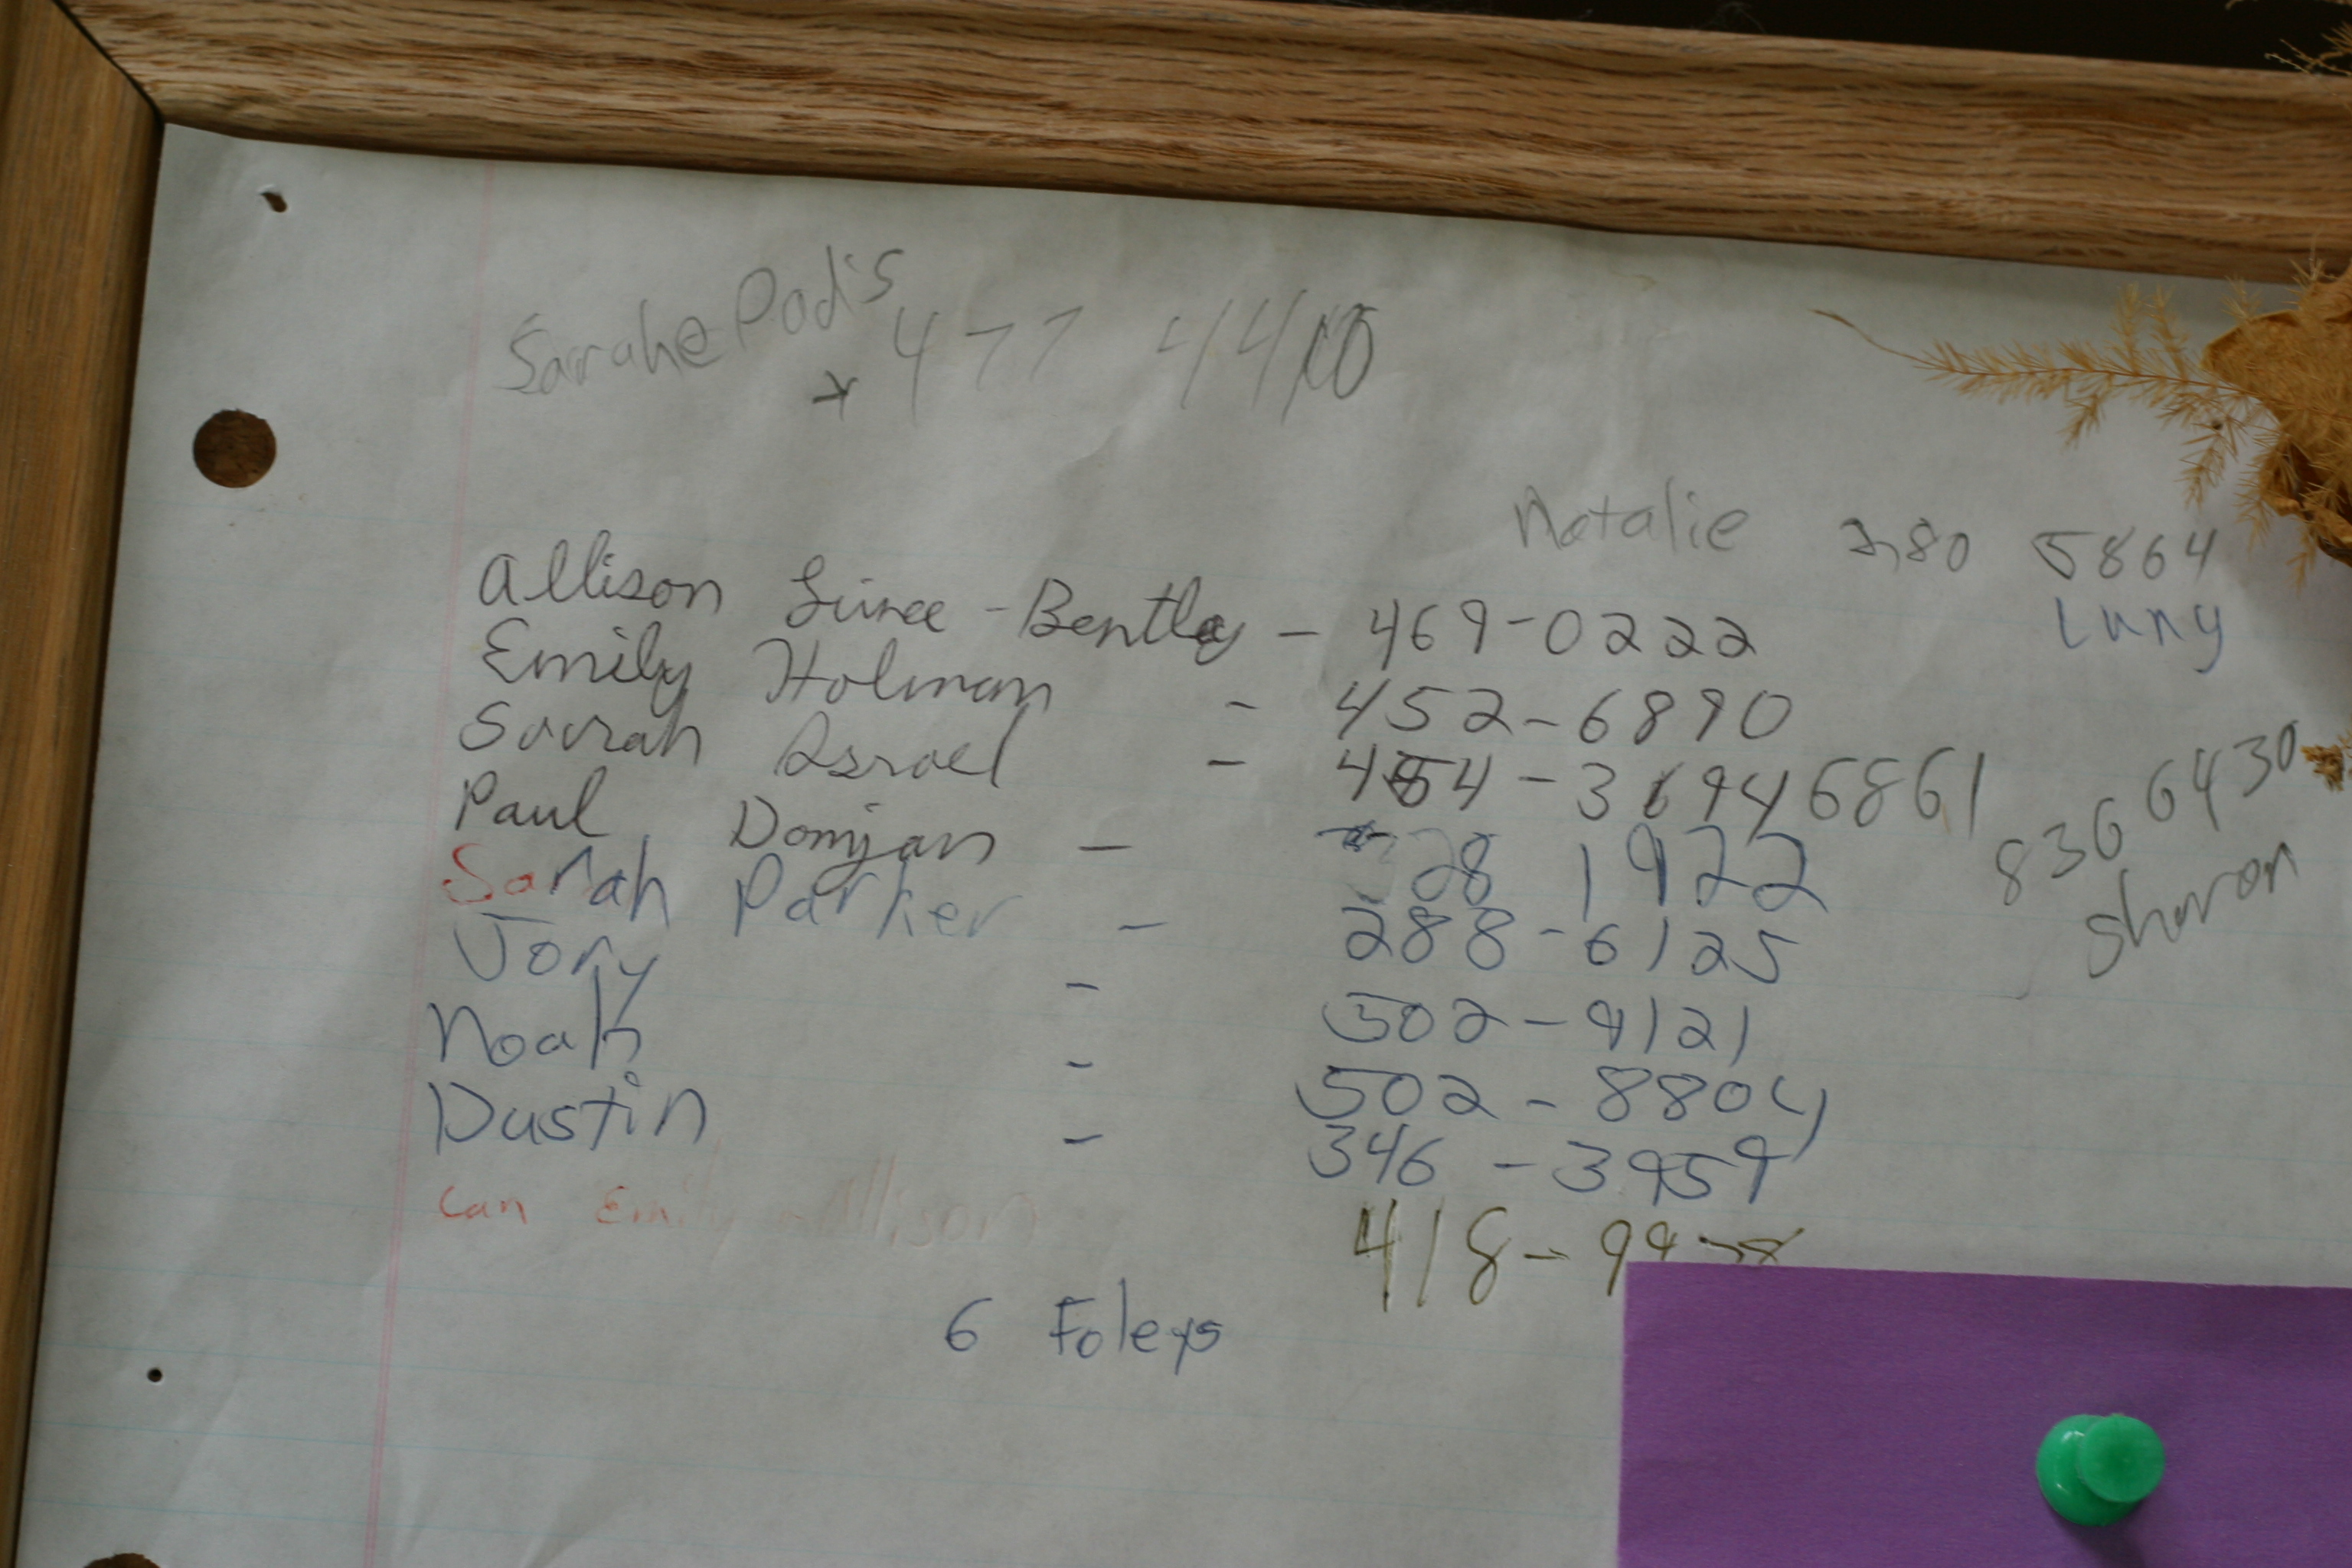 Sarah @ Dad's
477 4410
Natalie 280 5864
Luny
Allison - Bentley - 469-0222
Emily Holman - 452-6890
Sarah Israel - 454-3694 6861
Paul Domjan - 28 1922
8366430
Sharon
Sarah Parker - 288-6125
Jory - 502-9121
Noah - 502-8804
Dustin - 346-3959
Can Emily Allison
418-99
6 Foleys